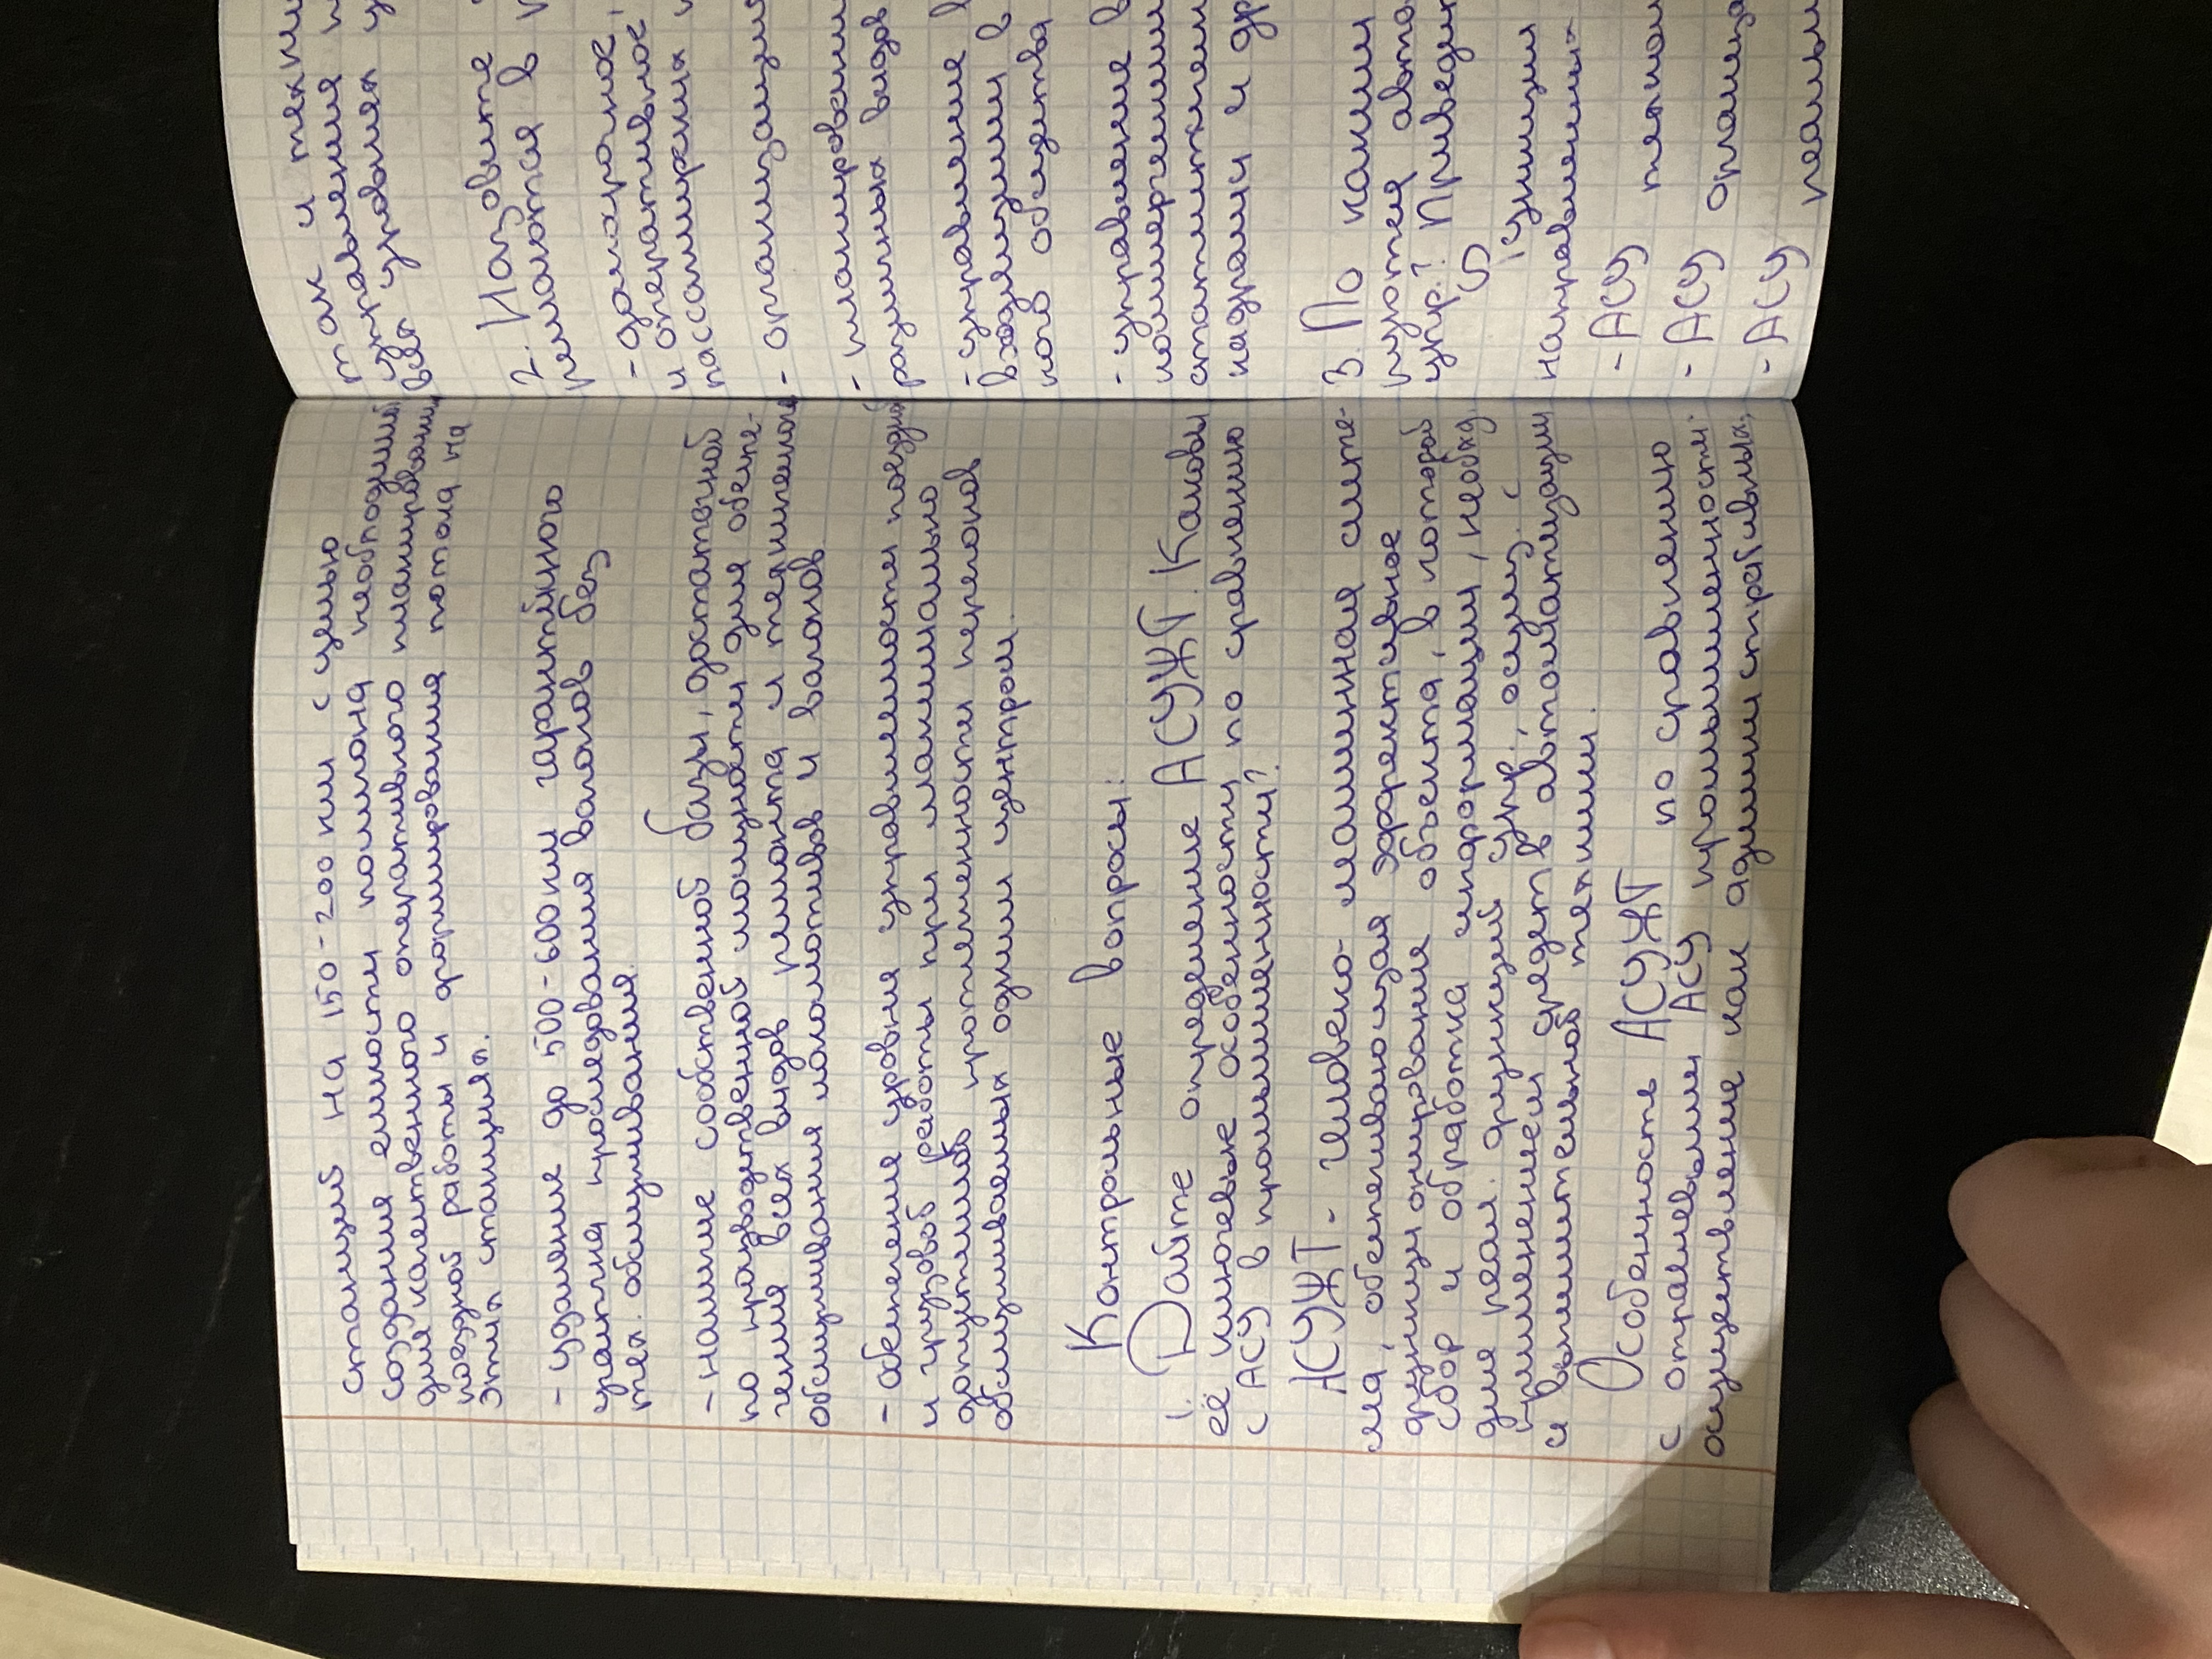 станций на 150-200 км с целью
создания емкости полигона необходимой
для качественного оперативного планирования
поездной работы и формирования потока на
этих станциях.
- удаление до 500-600 км гарантийного
участка проследования вагонов без
тех. обслуживания.
- наличие собственной базы, достаточной
по производственной мощности для обеспе-
чения всех видов ремонта и технического
обслуживания локомотивов и вагонов
- обеспечение уровня управляемости поездной
и грузовой работы при максимально
допустимой протяженности перегонов
обслуживаемых одним центром.
Контрольные вопросы:
1. Дайте определение АСУЖТ. Каковы
её ключевые особенности по сравнению
с АСУ в промышленности?
АСУЖТ - человеко-машинная систе-
ма, обеспечивающая эффективное
функционирование объекта, в которой
сбор и обработка информации, необход.
для реал. функций упр., осущ. с
применением средств автоматизации
и вычислительной техники.
Особенность АСУЖТ по сравнению
с отраслевыми АСУ промышленности:
осуществление как административных,
так и техни
управления н
всех уровнях у
2. Назовите
решаются в
- долгосрочное,
и оперативное
и пассажирских
- организация
- планировани
различных видов
- управление
входящими в
ного общества
- управление в
коммерчески
статистичем
кадрами и др
3. По каким
руются авто
упр.? Приведит
Функции
направленных
- АСУ технол
- АСУ организа
- АСУ реальн